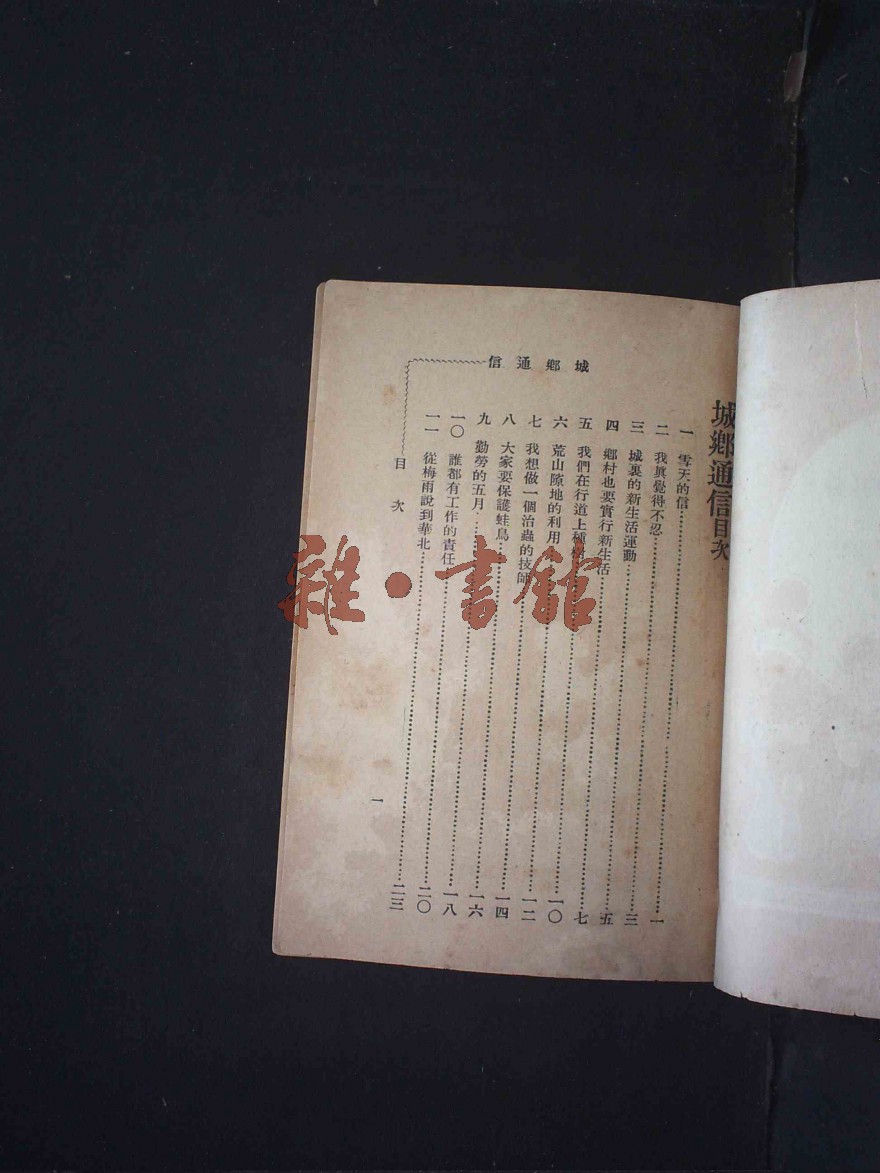 城鄉通信目次
一 雪天的信……一
二 我眞覺得不忍……三
三 城裏的新生活運動……五
四 鄉村也要實行新生活……七
五 我們在行道上種樹……一〇
六 荒山隙地的利用……一二
七 我想做一個治蟲的技師……一四
八 大家要保護蛙鳥……一六
九 勤勞的五月……一八
一〇 誰都有工作的責任……二〇
一一 從梅雨說到華北……二三
城鄉通信
目次
一
雜·書館